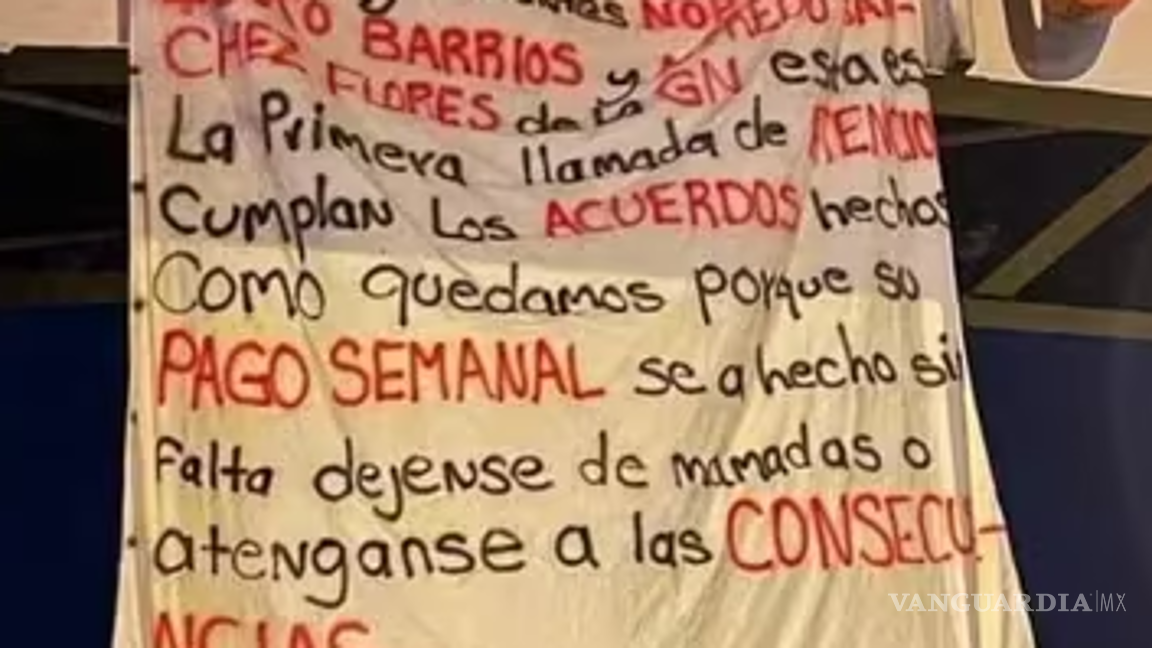 BARRIOS y GN esta es
CHEZ FLORES de la
La Primera llamada de
Cumplan Los ACUERDOS hechos
Como quedamos porque su
PAGO SEMANAL se a hecho si
Falta dejense de mamadas o
atenganse a las CONSECU-
NCIAS
VANGUARDIA|MX